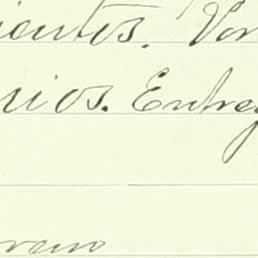 ientos. Por
rios. Entreg
rano